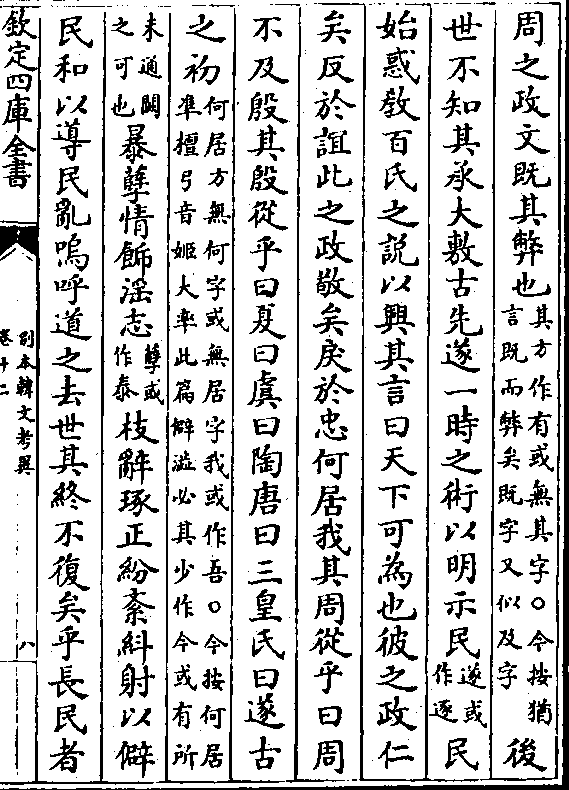 周之政文既其弊也其方作有或無其字○今按猶言既而弊矣既字又似及字後
世不知其承大敷古先遂一時之術以明示民遂或作逐民
始惑教百氏之說以興其言曰天下可為也彼之政仁
矣反於誼此之政敬矣戾於忠何居我其周從乎曰周
不及殷其殷從乎曰夏曰虞曰陶唐曰三皇氏曰遂古
之初何居方無何字或無居字我或作吾○今按何居準檀弓音姬大率此篇僻澁必其少作今或有所
未通闕之可也暴孽情飾淫志孽或作泰枝辭琢正紛紊糾射以僻
民和以導民亂嗚呼道之去世其終不復矣乎長民者
欽定四庫全書
別本韓文考異
卷十二
八